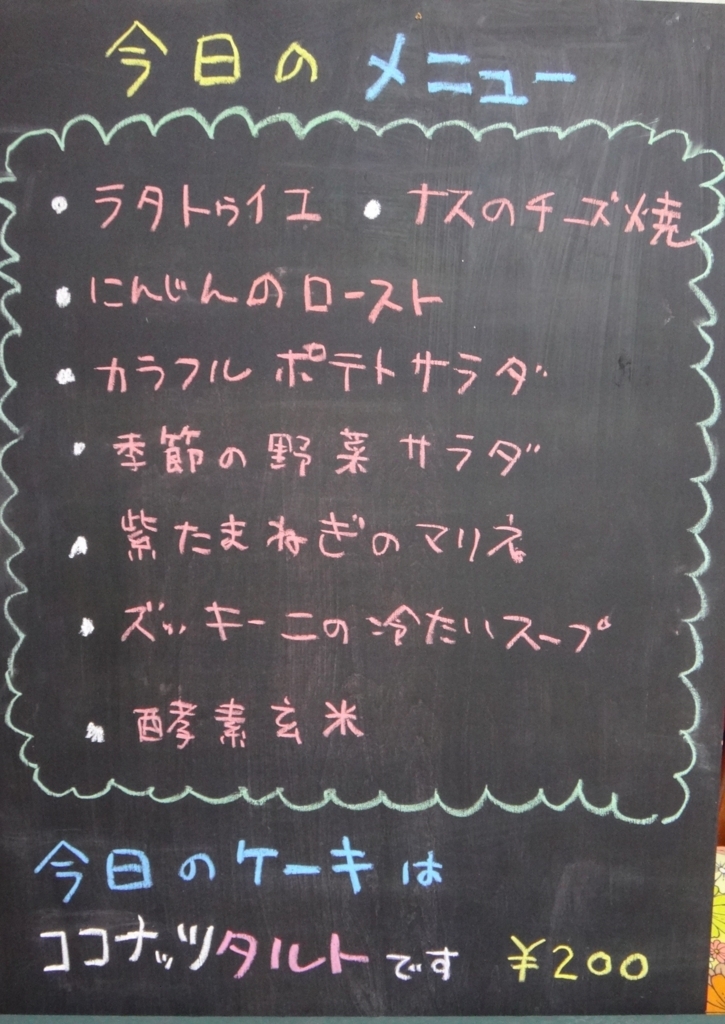 今日のメニュー
・ラタトゥイユ ・ナスのチーズ焼
・にんじんのロースト
・カラフルポテトサラダ
・季節の野菜サラダ
・紫たまねぎのマリネ
・ズッキーニの冷たいスープ
・酵素玄米
今日のケーキは
ココナッツタルトです ¥200